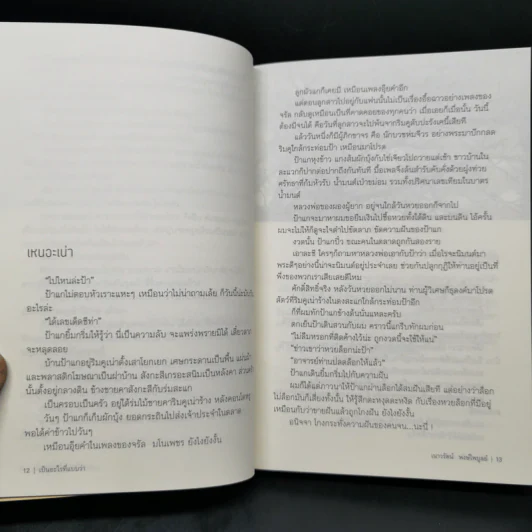 เหนอะเน่า
"ไปไหนล่ะป้า"
ป้าแกไม่ตอบหัวเราะแหะๆ เหมือนว่าไม่น่าถามเลย ก็วันนี้มัน
อะไรล่ะ
"ได้เลขเด็ดซีท่า"
ป้าแกยิ้มกริ่มให้รู้ว่า นี่เป็นความลับ จะแพร่งพรายมิได้ เดี๋ยว
จะหลุดลอย
บ้านป้าแกอยู่ริมคูเน่าตั้งเสาโยกเยก เศษกระดานเป็นพื้น
และพลาสติกโฆษณาเป็นฝาบ้าน สังกะสีเกรอะสนิมเป็นหลังคา
นั้นตั้งอยู่กลางดิน ข้างชายคาสังกะสีกับร่มสะแก
เป็นครอบเป็นครัว อยู่ใต้ร่มไม้ชายคาริมคูเน่าข้าง
วันๆ ป้าแกก็เก็บผักบุ้ง ยอดกระถินไปส่งเจ้าประจำในตลาด
พอได้ค่าข้าวไปวันๆ
เหมือนอุ๊ยคำในเพลงของจรัล มโนเพชร ยังไงยังงั้น
12 | เป็นอะไรก็แบบว่า
ลูกผัวแกก็เคยมี เหมือนเพลงอุ๊ยคำอีก
ตอนลูกสาวไปอยู่กับแฟนนั้นไม่เป็นเรื่องอื้อฉาวอย่างเพลงของ
จรัล กลับดูเหมือนเป็นที่คาดคอยของทุกคนว่า เมื่อเธอก็เมื่อนั้น วันนี้
ต้องมีจนได้ คือวันที่ลูกสาวจะไปพ้นจากริมคูคับบ่ะรังเคนี้เสียที
แล้ววันหนึ่งก็มีผู้ภิกขาจร คือ นักบวชห่มจีวร อย่างพระมาปักกลด
ริมคูใกล้กระท่อมป้า เหมือนมาโปรด
ป้าแกหุงข้าว แกงส้มผักบุ้งกับไข่เจียวไปถวายแต่เช้า ชาวบ้านใน
ละแวกก็ปากต่อปากถึงกันทันที มื้อเพลจึงล้นสำรับคับคั่งด้วยฝูงช่วย
ศรัทธาที่ก้มหัวรับ น้ำมนต์เป่าขม่อม รวมทั้งปริศนาเลขเทียมในบาตร
น้ำมนต์
หลวงพ่อของผองผู้ยาก อยู่จนใกล้วันหวยออกก็จากไป
ป้าแกจะมาหาผมขอยืมเงินไปซื้อหวยทั้งใต้ดิน และบนดิน โอ้คชั้น
ผมจะไม่ให้ก็ดูจะใจดำไปขัดลาภ ขัดความฝันของป้าแก
งวดนั้น ป้าแกบึ่ว ขณะคนในตลาดถูกกันสองราย
เอาละซี ใครๆก็ถามหาจากป้าแกว่า เมื่อไรจะนิมนต์มา
พระดีๆอย่างนี้น่าจะนิมนต์อยู่ประจำเลย ช่วยกันปลูกกุฏิให้ท่านอยู่เป็นที่
พึ่งของพวกเราเสียเลยดีไหม
ศักดิ์สิทธิ์จริง หลังวันหวยออกไม่นาน ท่านผู้วิเศษก็ธุดงค์มาโปรด
สัตว์ที่ริมคูเน่าข้างในดงสะแกใกล้กระท่อมป้าอีก
ก็ที่ผมทักป้าแกข้างต้นนั่นแหละครับ
ตกเย็นป้าเดินสวนกับผม คราวนี้แกรีบทักผมก่อน
"ไม่ลืมหรอกที่ติดค้างไว้น่ะ ถูกงวดนี้จะใช้ให้แน่"
"ข่าวเขาว่าหวยล็อกน่ะป้า"
"อาจารย์ท่านปลดล็อกให้แล้ว"
ป้าแกเดินยิ้มกริ่มไปกับความฝัน
ผมก็ได้แต่ภาวนาให้ป้าแกผ่านล็อกได้สมฝันเสียที แต่อย่างว่าล็อก
ไปล็อกมันก็เสี่ยงทั้งนั้น ให้รู้สึกตะหงุดตะหงิด กับเรื่องหวยล็อกที่มีอยู่
เหมือนกับว่าขายฝันแล้วถูกโกงฝัน ยังไงยังงั้น
อนิจจา โกงกระทั่งความฝันของคนจน...นะนี่ !
เนาวรัตน์ พงษ์ไพบูลย์ | 13